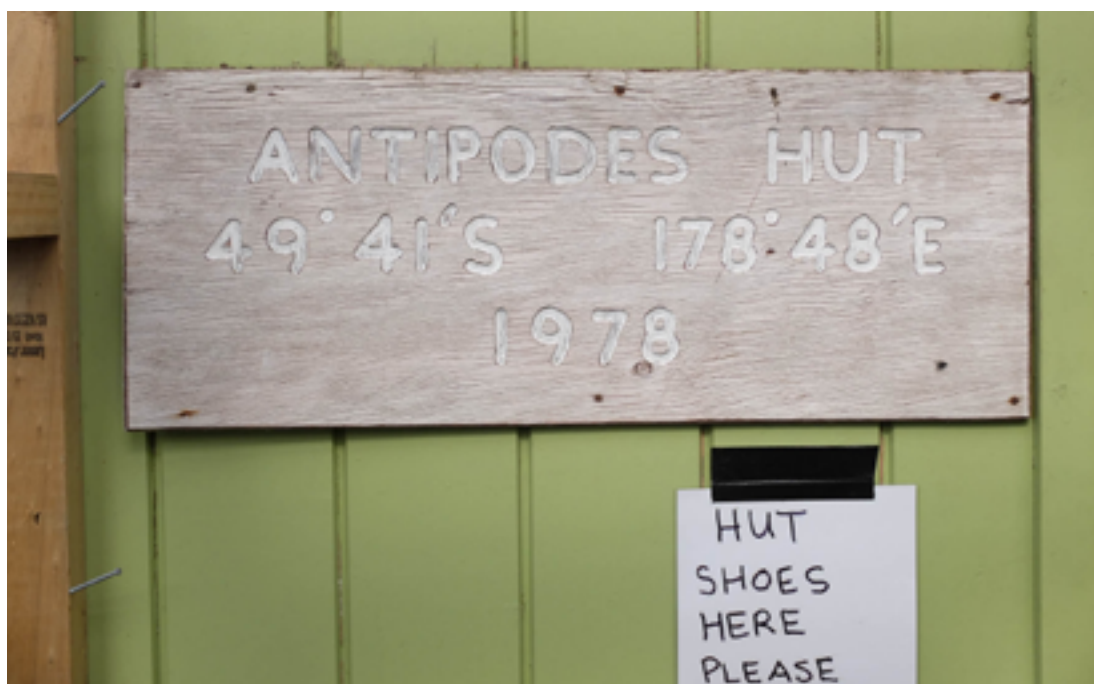 ANTIPODES HUT
49° 41'S 178° 48'E
1978
HUT
SHOES
HERE
PLEASE